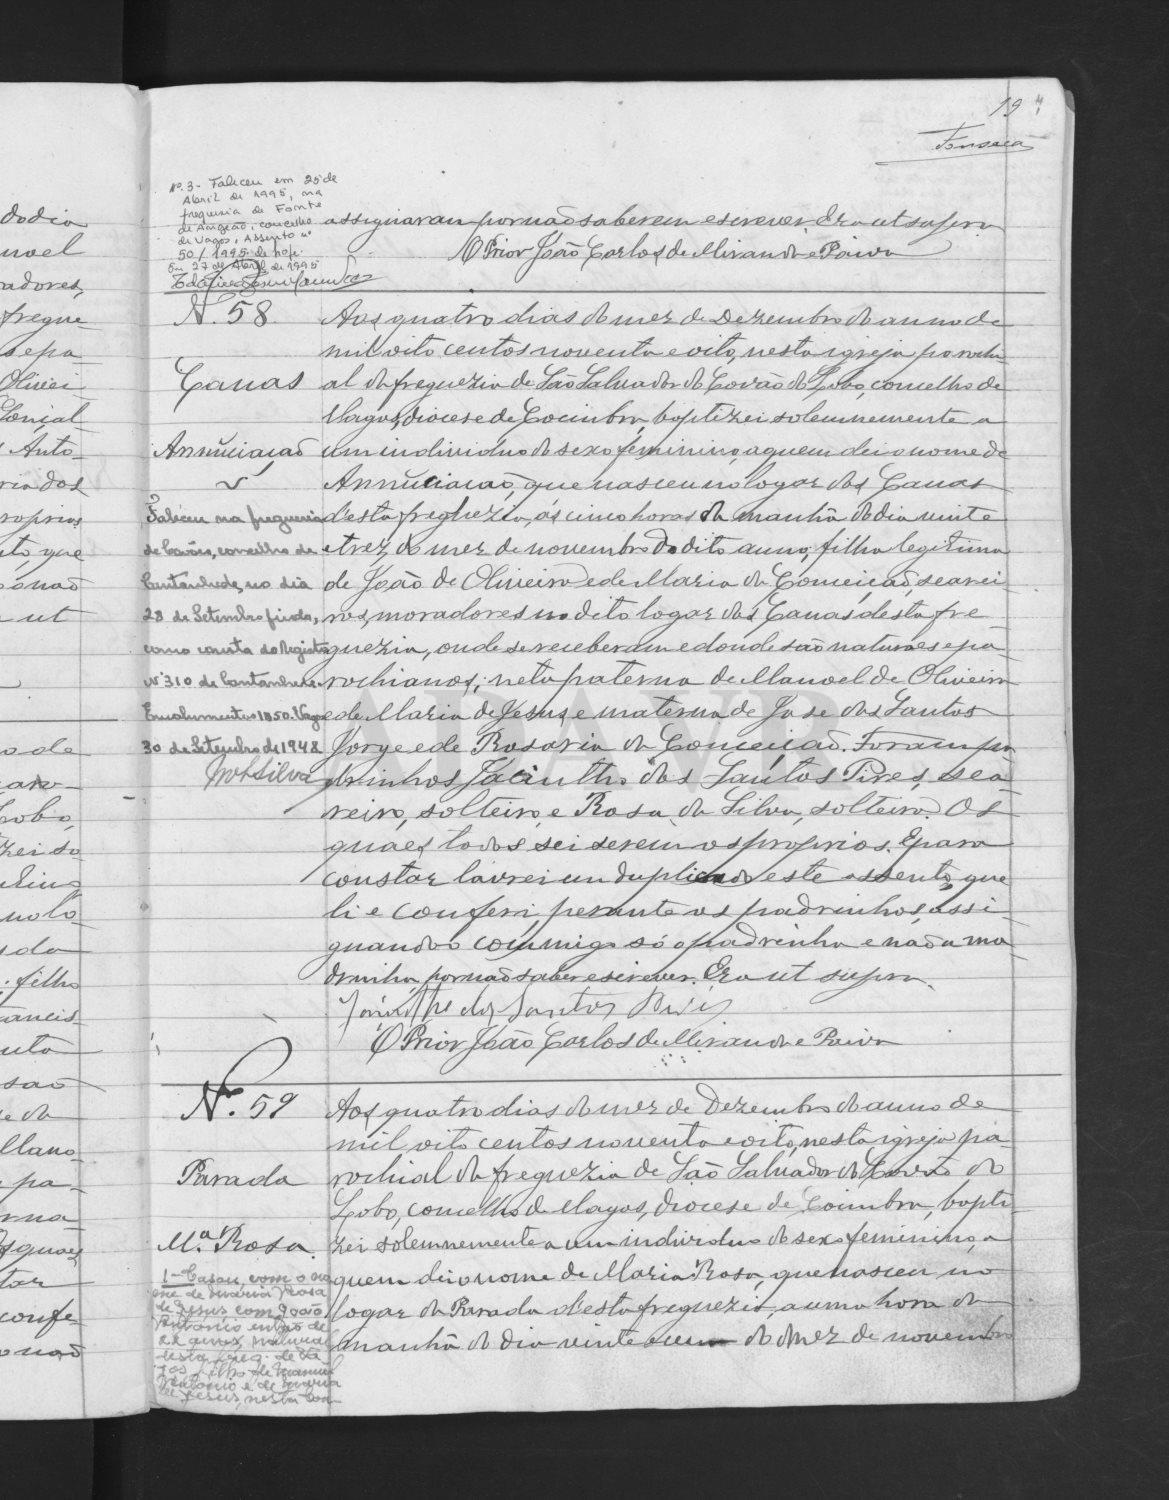 19
Fonseca
Nº 3 - Faleceu em 25 de
Abril de 1995, na
freguesia de Fonte
de Angeão, concelho
de Vagos, Assento nº
50/1995 de hoje.
Em 27 de Abril de 1995
assignaram por não saberem escrever. Era ut supra
O Prior João Carlos de Miranda e Paiva
N. 58
Canas
Annuciação
Aos quatro dias do mez de Dezembro do anno de
mil oito centos noventa e oito, nesta igreja parochi-
al da freguezia de São Salvador do Covão do Lobo, concelho de
Vagos, diocese de Coimbra, baptizei solemnemente a
um individuo do sexo feminino, a quem dei o nome de
Annuciação, que nasceu no logar das Canas
d'esta freguezia, ás cinco horas da manhã do dia vinte
e trez do mez de novembro do dito anno, filha legitima
de João de Oliveira e de Maria da Conceição, searei-
ros, moradores no dito logar das Canas desta fre-
guezia, onde se receberam e donde são naturaes e pa-
rochianos; neta paterna de Manoel de Oliveira
e de Maria de Jesus, e materna de Jose dos Santos
Jorge e de Rosaria da Conceição. Foram pa-
drinhos Jacintho dos Santos Pires, sea-
reiro, solteiro, e Rosa da Silva, solteira. Os
quaes todos sei serem os proprios. E para
constar lavrei em duplicado este assento, que
li e conferi perante os padrinhos, assi-
gnando commigo só o padrinho e não a ma-
drinha, por não saber escrever. Era ut supra.
Jacintho dos Santos Pires
O Prior João Carlos de Miranda e Paiva
3º
Faleceu na freguesia
de Covões, concelho de
Cantanhede, no dia
28 de Setembro findo,
como consta do Registo
Nº 310 de Cantanhede.
Emolumentos 1$50. Vagos
30 de Setembro de 1948
Silva
N. 59
Parada
M.ª Rosa
Aos quatro dias do mez de Dezembro do anno de
mil oito centos noventa e oito, nesta igreja pa-
rochial da freguezia de São Salvador do Covão do
Lobo, concelho de Vagos, diocese de Coimbra, bapti-
zei solemnemente a um individuo do sexo feminino, a
quem dei o nome de Maria Rosa, que nasceu no
logar da Parada d'esta freguezia, a uma hora da
manhã do dia vinte e um do mez de novembro
1 - Casou, com o no
me de Maria Rosa
de Jesus com João
Antonio então de
22 anos, natural
desta freg. de Va
gos, filho de Manuel
Antonio e de Maria
de Jesus, nesta Con
do dia
noel
adores,
fregue-
e pa-
Olivei-
Anto-
proprios
que
não
ut
de
Lobo,
zei so-
filho
são
e da
pa-
quaes
tar
confe-
não